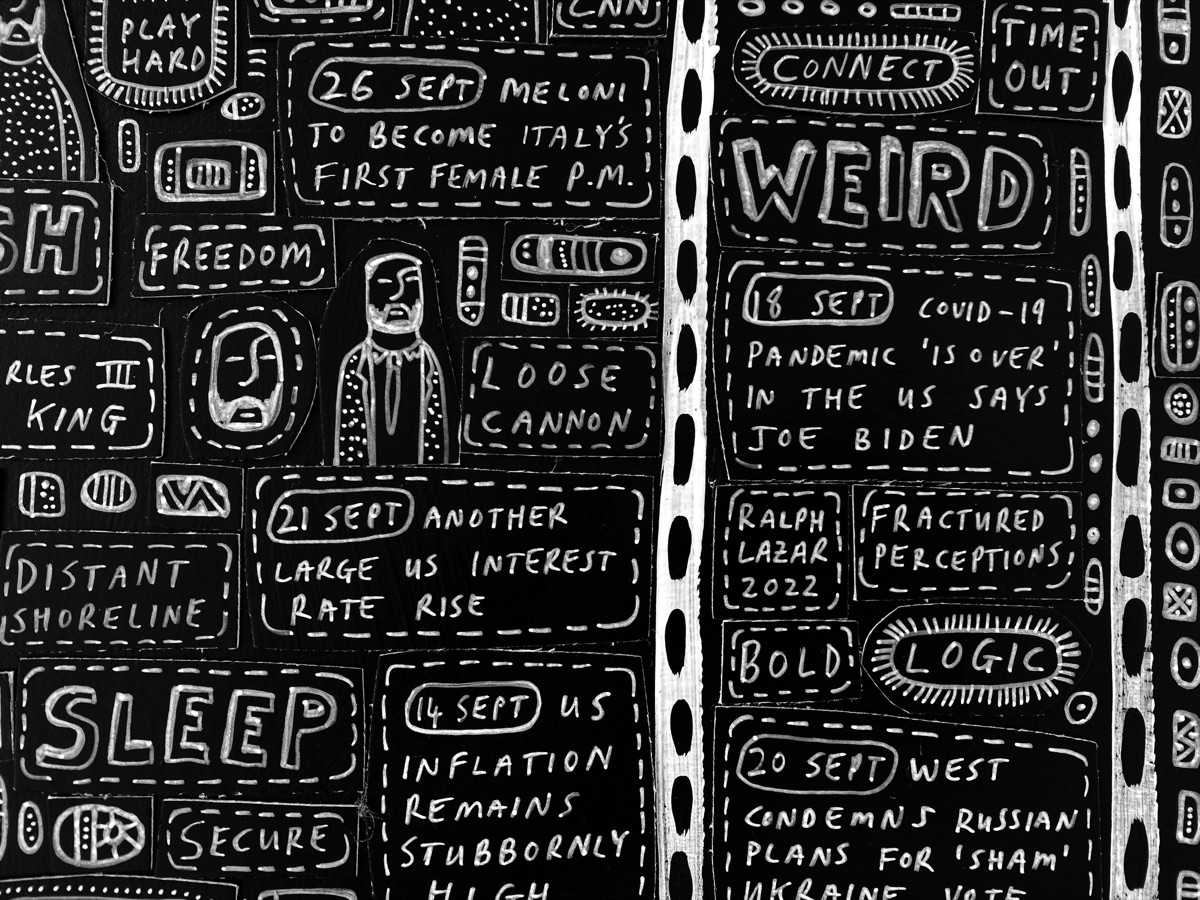 PLAY
HARD
CNN
26 SEPT MELONI
TO BECOME ITALY'S
FIRST FEMALE P.M.
SH
FREEDOM
RLES III
KING
LOOSE
CANNON
21 SEPT ANOTHER
LARGE US INTEREST
RATE RISE
DISTANT
SHORELINE
SLEEP
SECURE
14 SEPT US
INFLATION
REMAINS
STUBBORNLY
HIGH
CONNECT
TIME
OUT
WEIRD
18 SEPT COVID-19
PANDEMIC 'IS OVER'
IN THE US SAYS
JOE BIDEN
RALPH
LAZAR
2022
FRACTURED
PERCEPTIONS
BOLD
LOGIC
20 SEPT WEST
CONDEMNS RUSSIAN
PLANS FOR 'SHAM'
UKRAINE VOTE